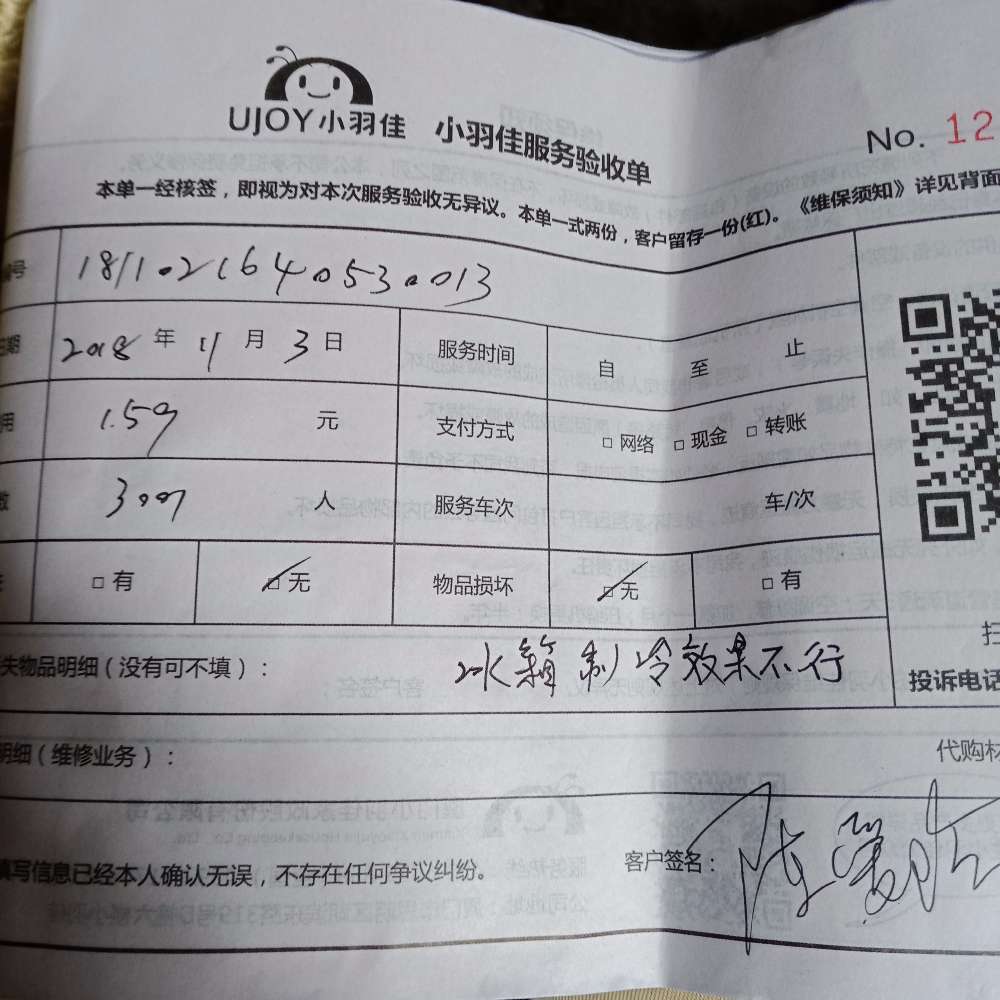 UJOY小羽佳 小羽佳服务验收单
No. 12
本单一经核签，即视为对本次服务验收无异议。本单一式两份，客户留存一份(红)。《维保须知》详见背面
号 1811021640530013
期 2018 年 11 月 3 日 服务时间 自 至 止
用 159 元 支付方式 □ 网络 □ 现金 □ 转账
数 人 服务车次 车/次
□ 有 □ 无 物品损坏 □ 无 □ 有
失物品明细(没有可不填)： 冰箱制冷效果不行
扫
投诉电话
明细(维修业务)： 代购材
填写信息已经本人确认无误，不存在任何争议纠纷。 客户签名：